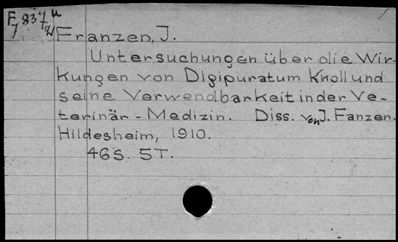 F 837 u
Franzen, J.
Untersuchungen über die Wir-
kungen von Digipuratum Knoll und
seine Verwendbarkeit in der Ve-
terinär-Medizin. Diss. von J. Fanzen.
Hildesheim, 1910.
46 S. 5 T.